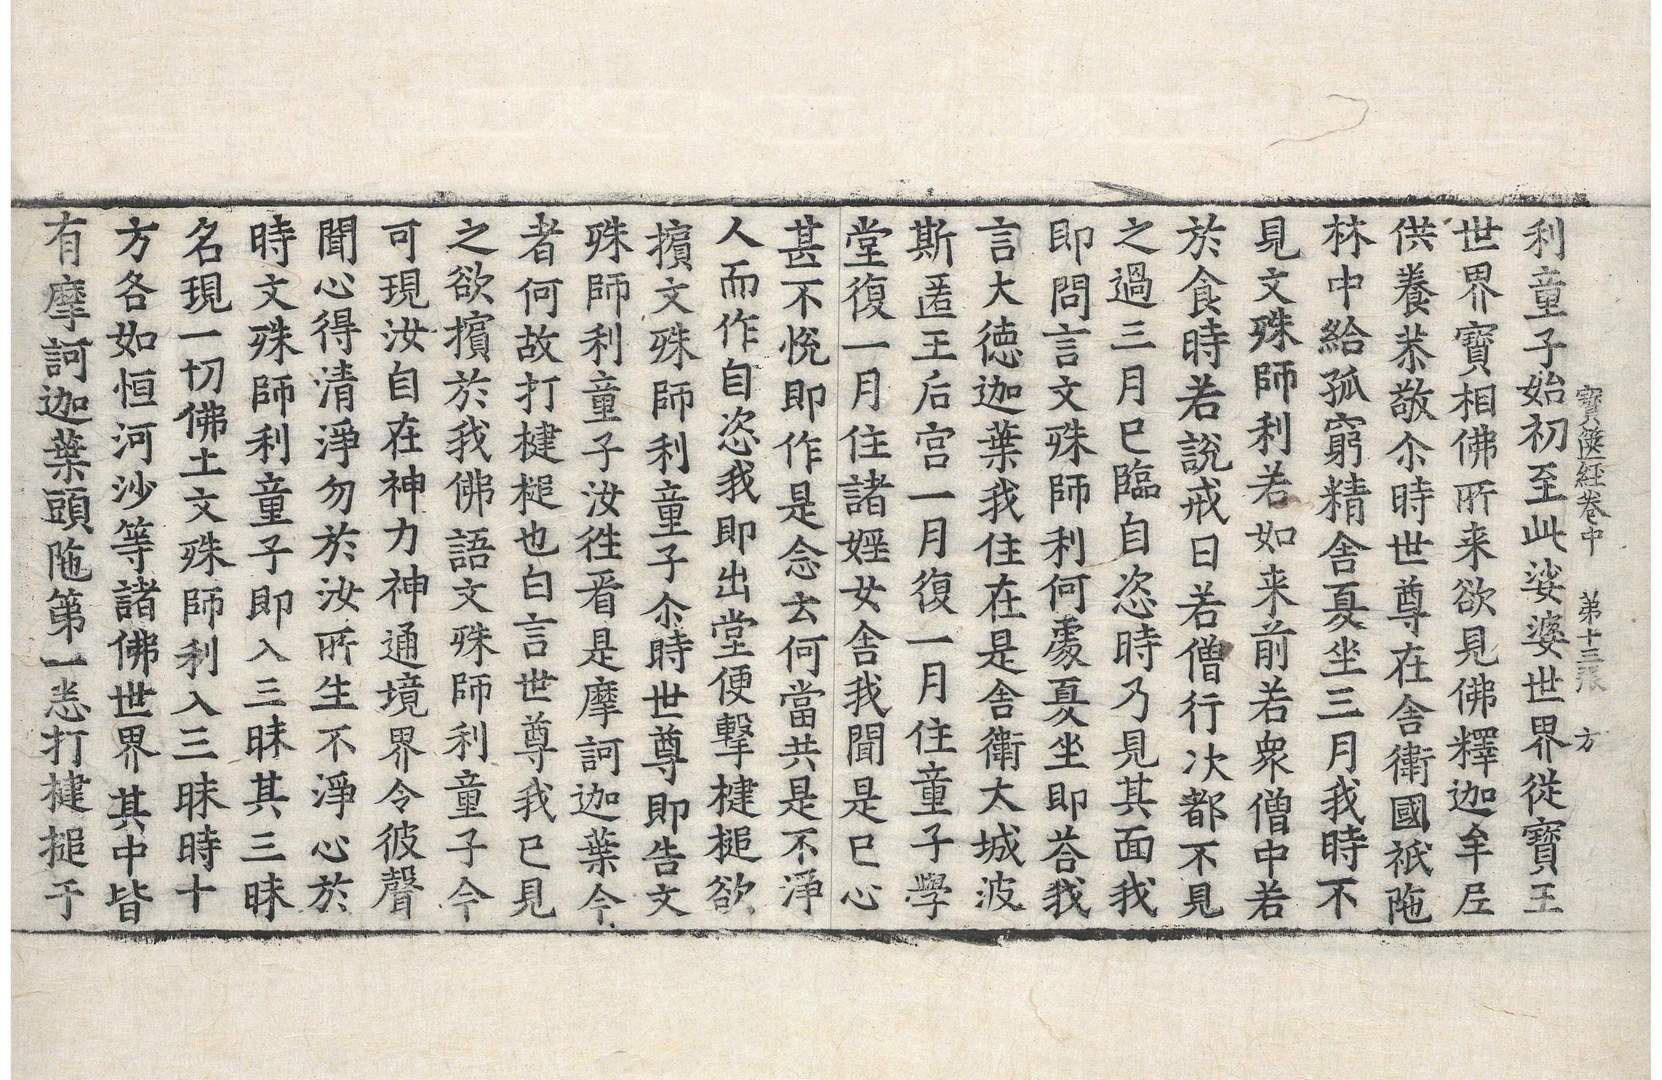 寶篋經卷中　第十三張　方
利童子始初至此娑婆世界從寶王
世界寶相佛所来欲見佛釋迦牟尼
供養恭敬尒時世尊在舍衛國祇陁
林中給孤窮精舍夏坐三月我時不
見文殊師利若如来前若衆僧中若
於食時若說戒日若僧行次都不見
之過三月已臨自恣時乃見其面我
即問言文殊師利何處夏坐即荅我
言大德迦葉我住在是舍衛大城波
斯匿王后宫一月復一月住童子學
堂復一月住諸婬女舍我聞是已心
甚不悅即作是念云何當共是不淨
人而作自恣我即出堂便擊揵槌欲
擯文殊師利童子尒時世尊即告文
殊師利童子汝往看是摩訶迦葉今
者何故打揵槌也白言世尊我已見
之欲擯於我佛語文殊師利童子今
可現汝自在神力神通境界令彼聲
聞心得清淨勿於汝所生不淨心於
時文殊師利童子即入三昧其三昧
名現一切佛土文殊師利入三昧時十
方各如恒河沙等諸佛世界其中皆
有摩訶迦葉頭陁第一悉打揵槌于